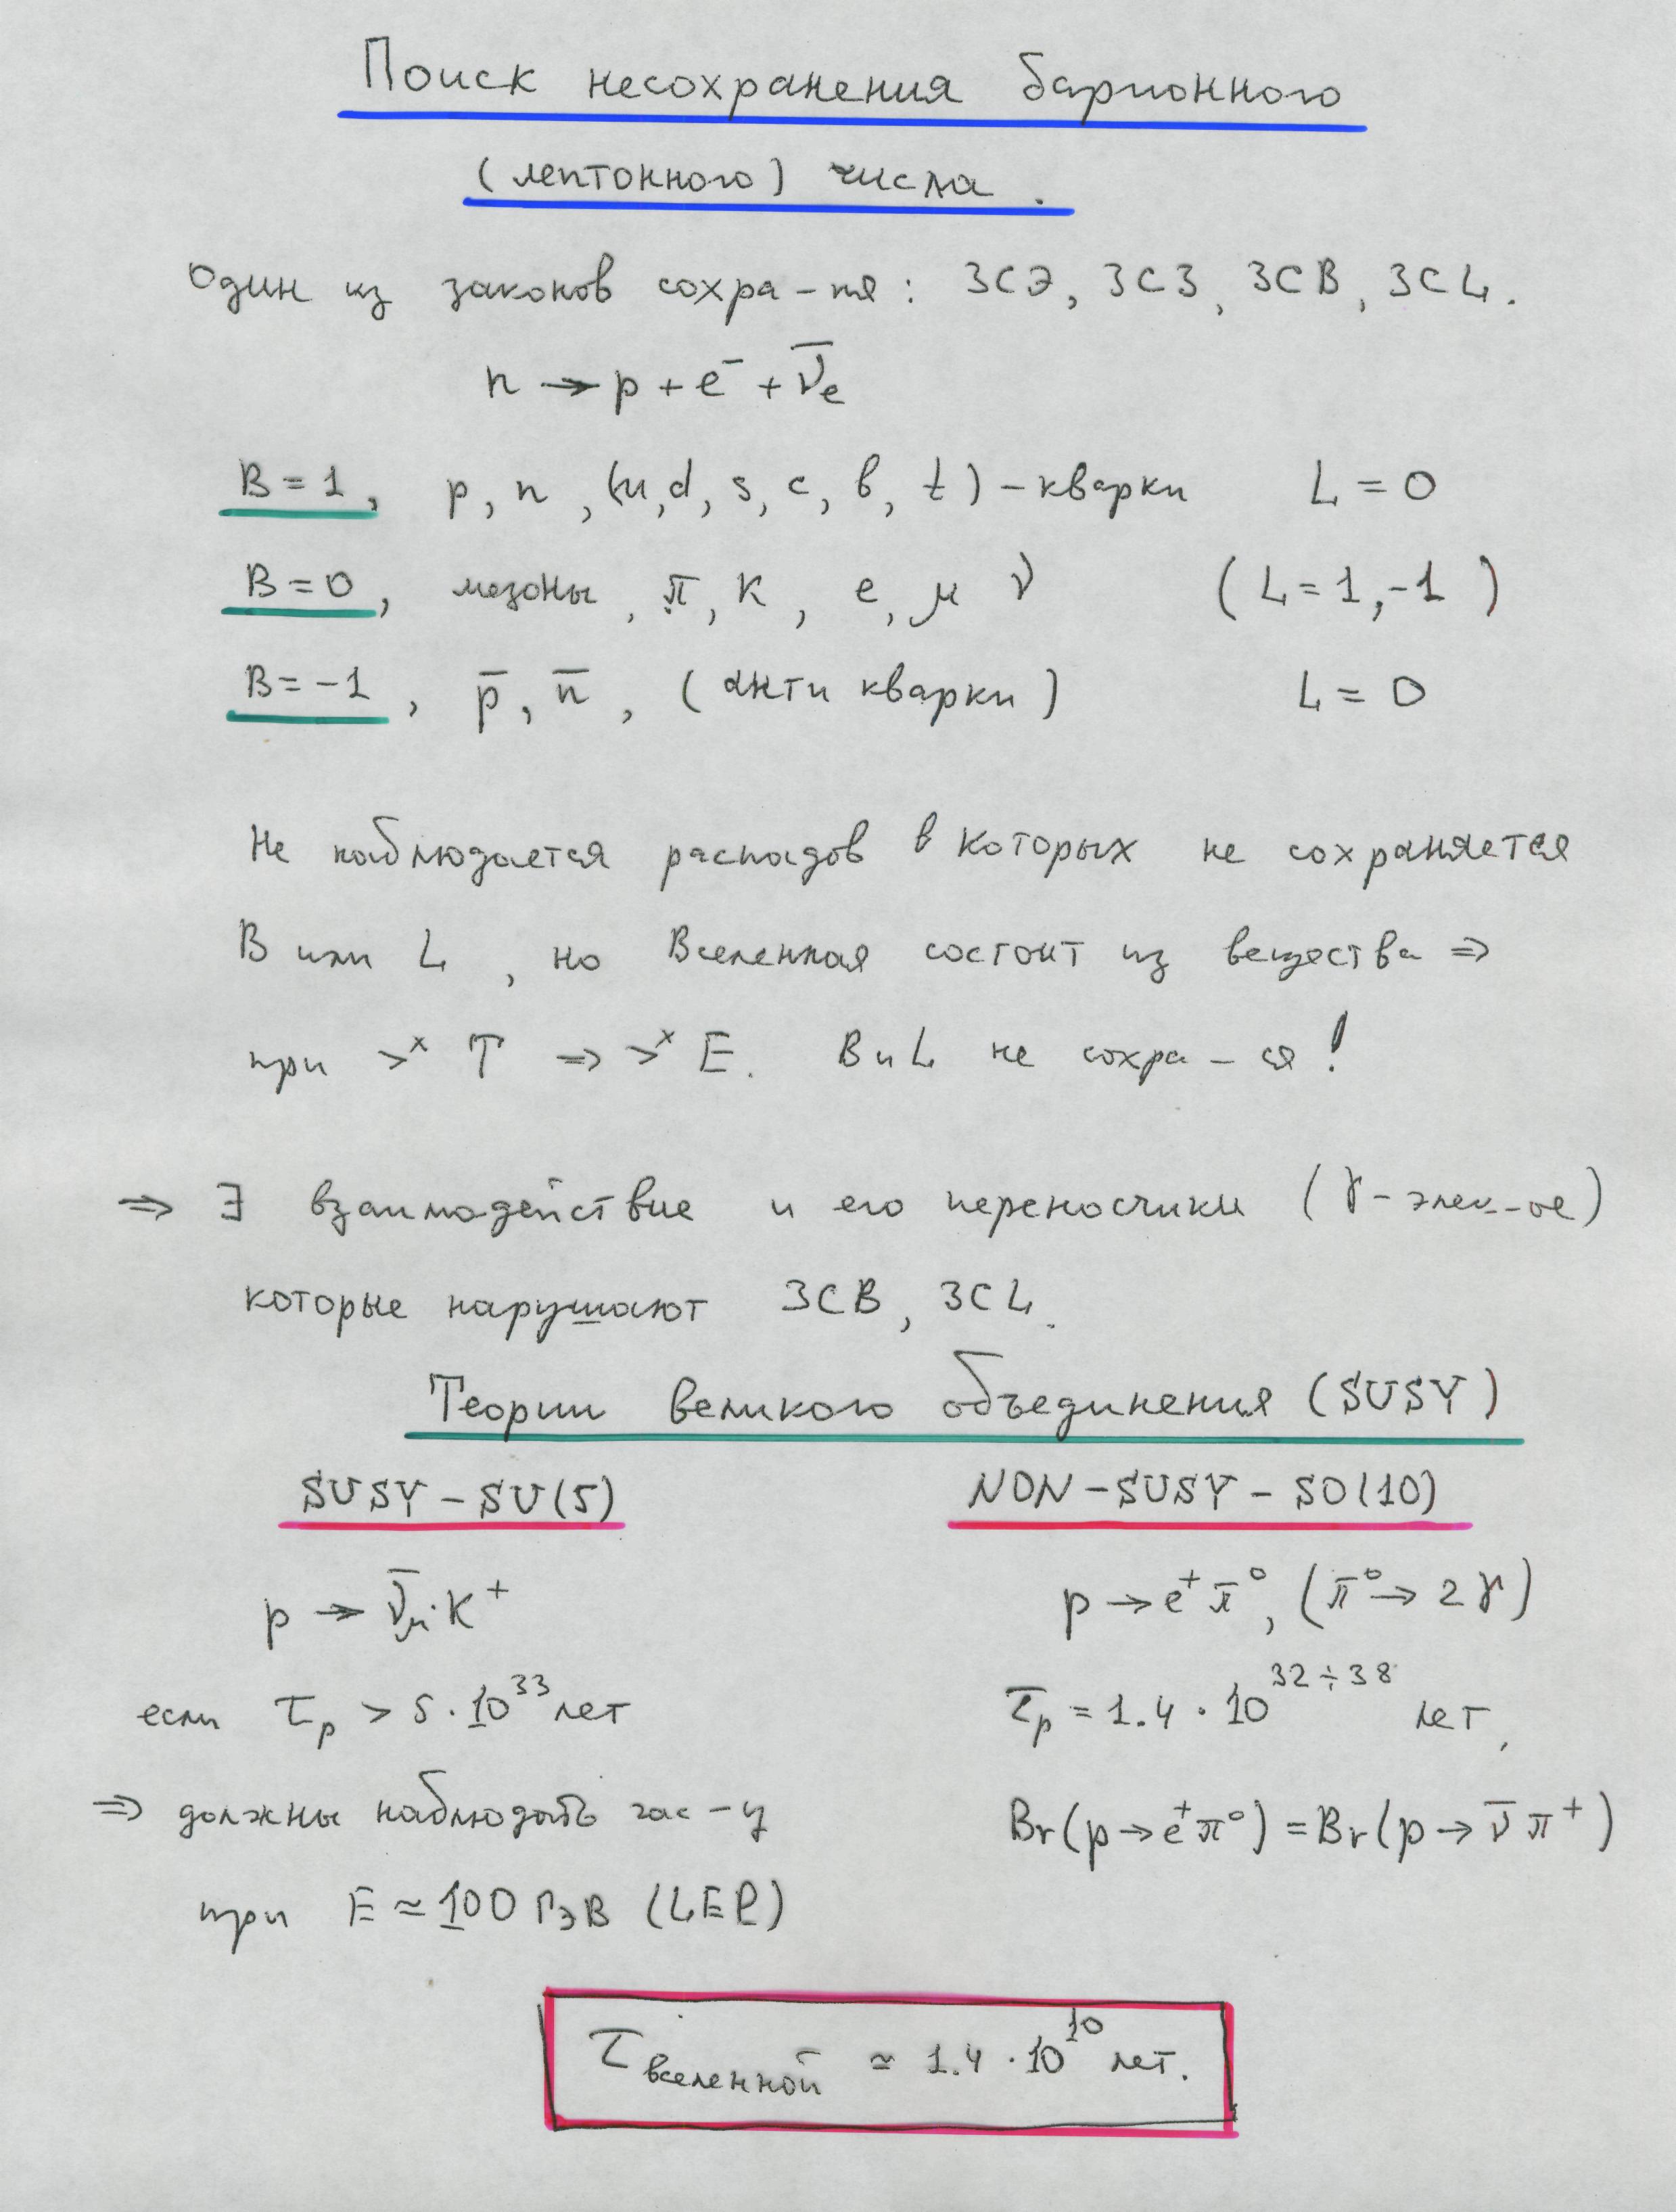 Поиск несохранения барионного
(лептонного) числа.
Один из законов сохра-ия: ЗСЭ, ЗСЗ, ЗСВ, ЗСL.
n → p + e⁻ + ν̅ₑ
B = 1, p, n, (u, d, s, c, b, t) - кварки L = 0
B = 0, мезоны, π, K, e, μ ν (L = 1, -1)
B = -1, p̅, n̅, (анти кварки) L = 0
Не наблюдается распадов в которых не сохраняется
B или L, но Вселенная состоит из вещества ⇒
при >ˣ T ⇒ >ˣ E. B и L не сохра-ся!
⇒ ∃ взаимодействие и его переносчики (γ - элек-ое)
которые нарушают ЗСВ, ЗСL.
Теории великого объединения (SUSY)
SUSY - SU(5) NON - SUSY - SO(10)
p → ν̅_μ K⁺ p → e⁺ π⁰, (π⁰ → 2γ)
если τ_p > 5 · 10³³ лет τ_p = 1.4 · 10³²÷³⁸ лет,
⇒ должны наблюдать час-у Br(p → e⁺ π⁰) = Br(p → ν̅ π⁺)
при E ≃ 100 ГэВ (LEP)
τ вселенной ≃ 1.4 · 10¹⁰ лет.